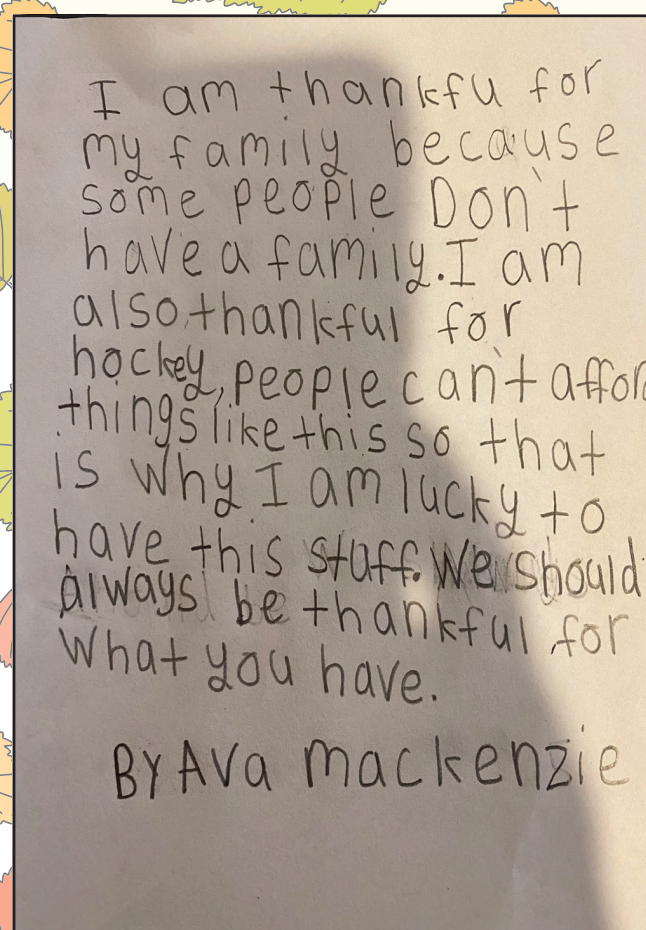 I am thankfu for
my family because
some people Don't
have a family. I am
also thankful for
hockey, people can't affor
things like this so that
is why I am lucky to
have this stuff. We should
always be thankful for
What you have.
By AVa mackenzie